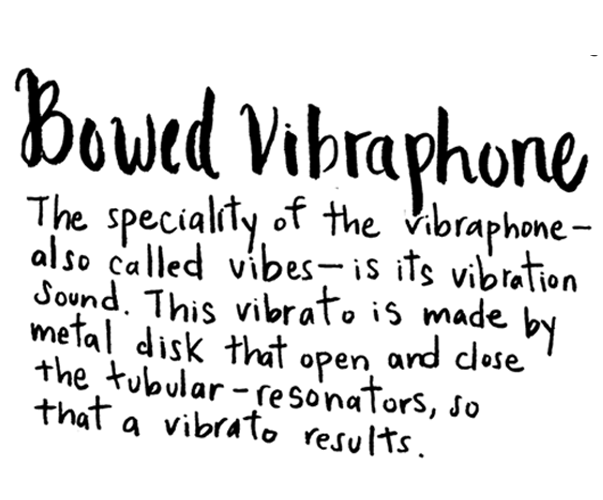 Bowed Vibraphone
The speciality of the vibraphone—
also called vibes—is its vibration
sound. This vibrato is made by
metal disk that open and close
the tubular-resonators, so
that a vibrato results.